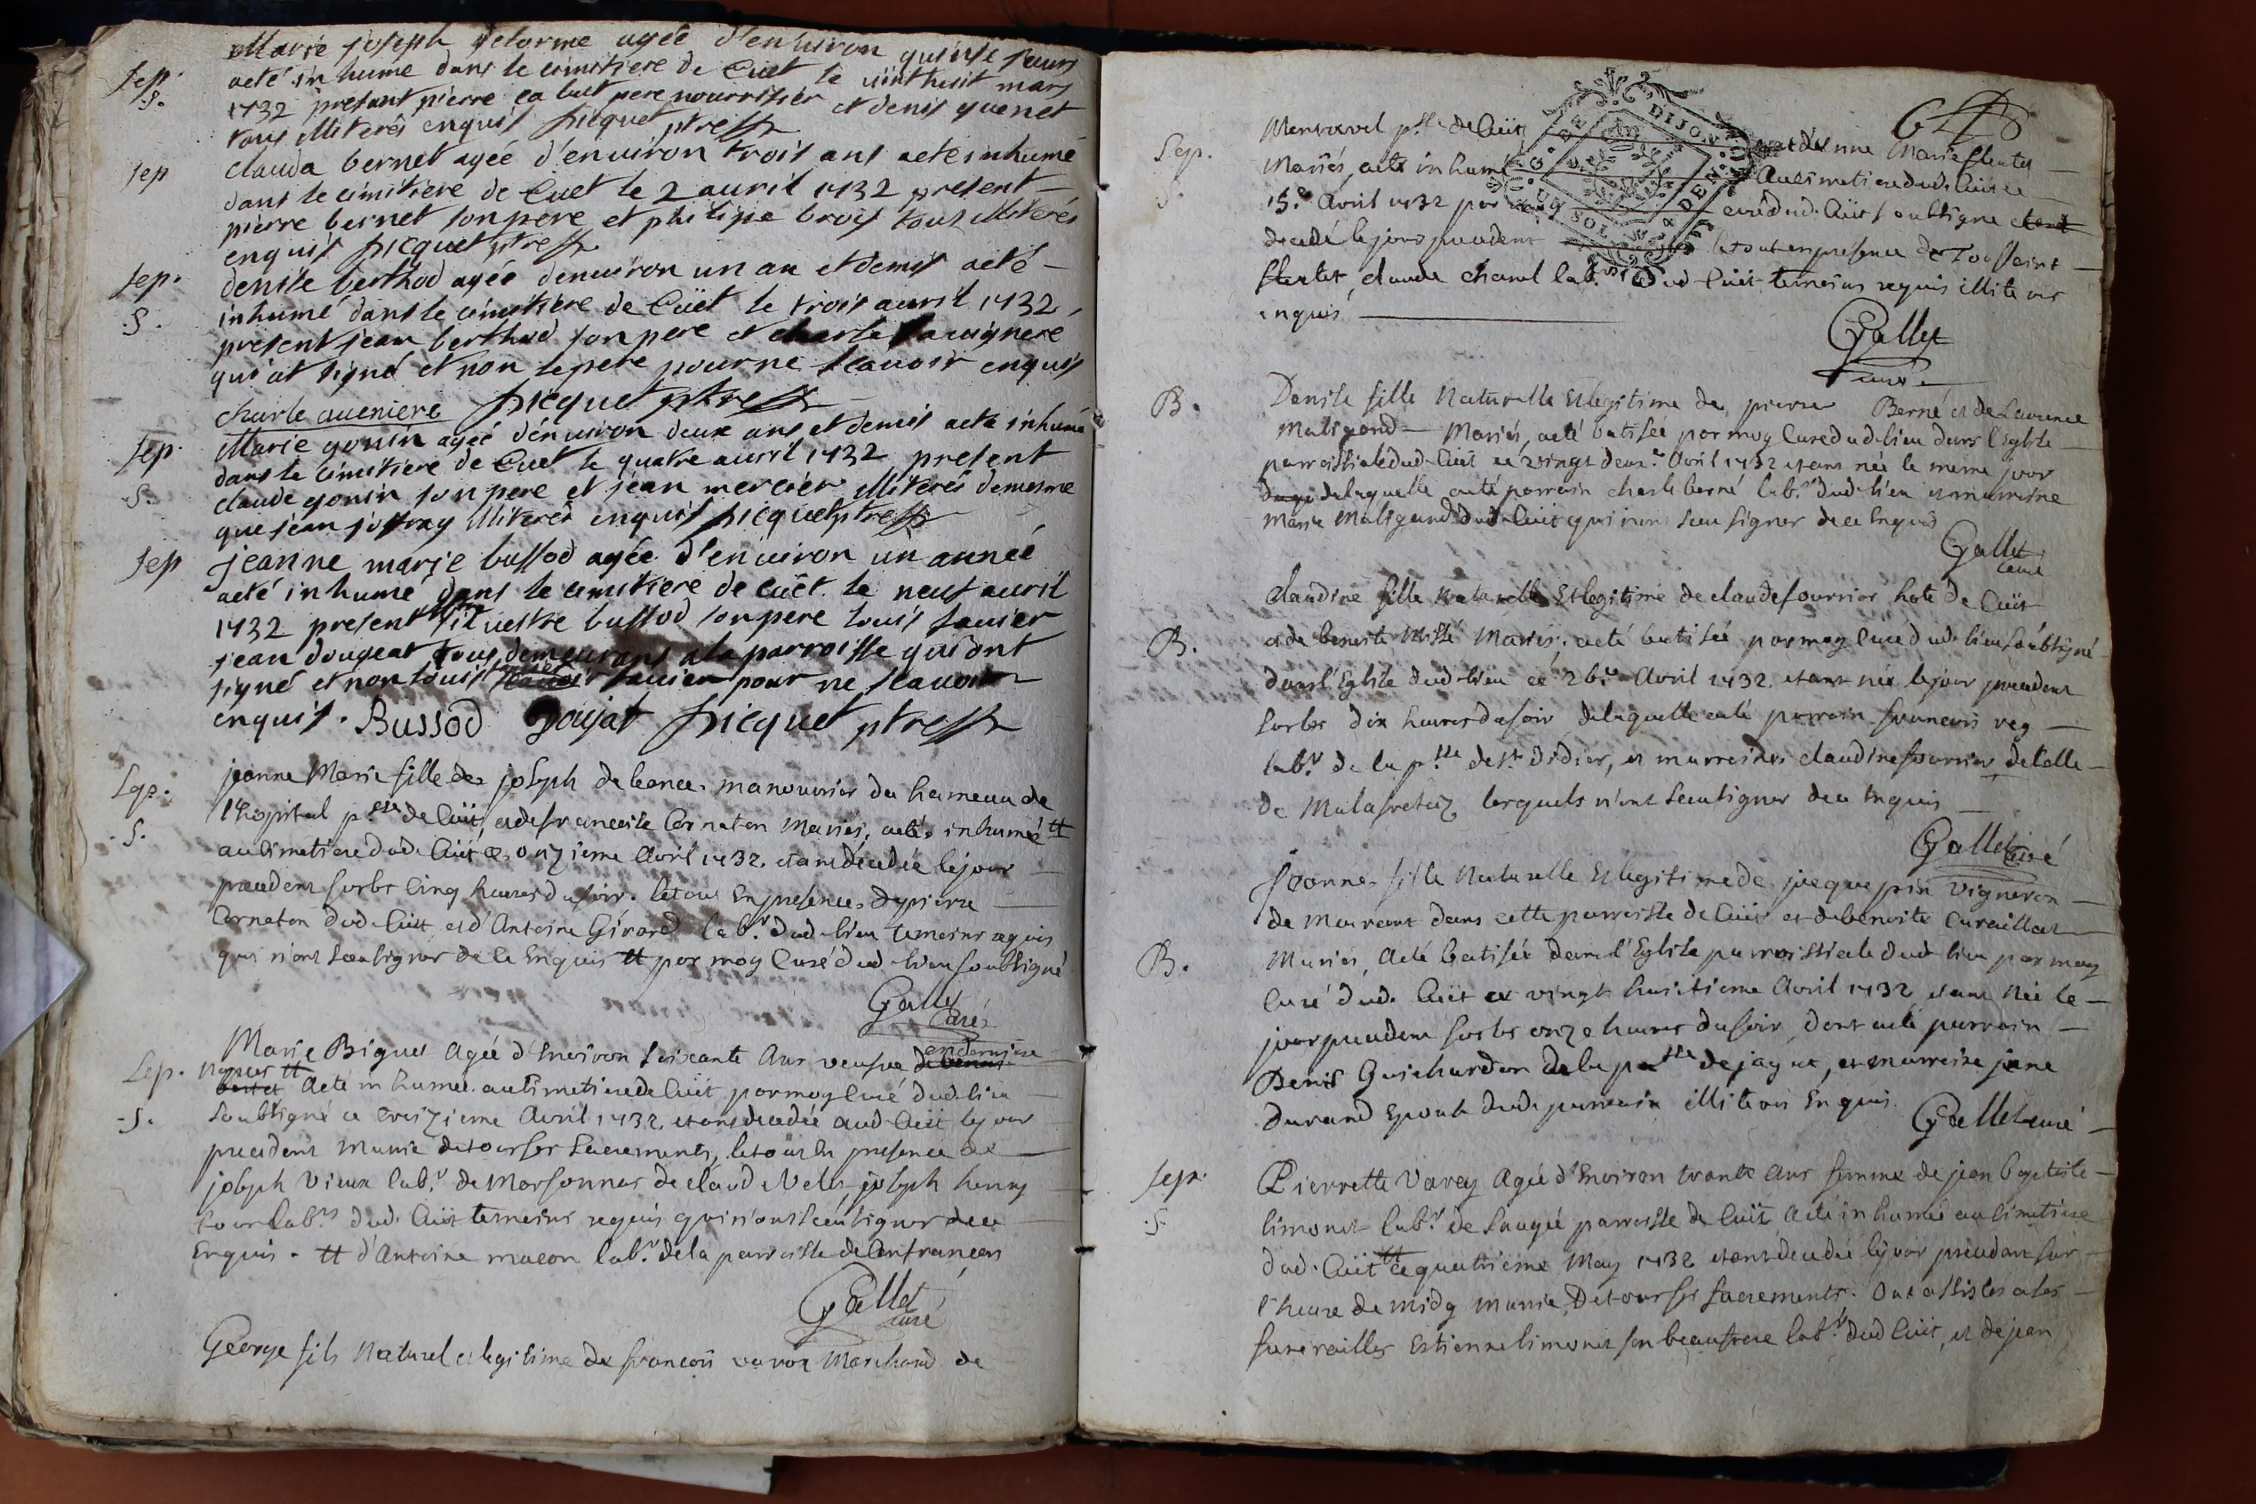 Marie joseph delorme agée d'enuiron quinse jours
sep. acté inhumé dans le cimitiere de Cuet le uinthuit mars
.S. 1732 present pierre ca but pere nourrisier et denis quenet
tous illiterés enquis picquet ptre
sep clauda bernet agée d'enuiron trois ans acté inhumé
dans le cimitiere de Cuet le 2 auril 1732 present
pierre bernet son pere et philipe brois tous illiterés
enquis picquet ptre
sep. denise berthod agée denuiron un an et demis acté
.S. inhumé dans le cimitiere de Cüet le trois auril 1732
present jean berthod son pere et charle auignere
qui at signé et non le pere pour ne scauoir enquis
charle aueniere picquet ptre
sep. Marie gonin agée d'enuiron deux ans et demis acté inhumé
dans le cimitiere de Cuet le quatre auril 1732 present
S. claude gonin son pere et jean mercier illiterés demesme
que jean illiterés enquis picquet ptre
sep jeanne marie bussod agée d'enuiron un année
acté inhumé dans le cimitiere de cuet le neuf auril
1732 present siluestre bussod son pere louis sauier
jean dougeat tous demeurans a la parroisse qui ont
signé et non louis sauier pour ne scauoir
enquis. Bussod Dougat picquet ptre
Sep. jeanne Marie fille de joseph de leance manouurier du hameau de
l'hospital p.sse de Cüit et de francoise Cornaton Mariés, acté inhumé tt
.S. au cimetiere dud. Cüit ce onzieme Avril 1732. etant decedée le jour
precedent sur les cinq heures du soir. le tout En presence de pierre
Cornaton dud. Cuit, et d'Antoine Girard lab.r dud. lieu temoins requis
qui n'ont sceu signer de ce Enquis tt par moy Curé dud. lieu soubsigné
Gallet
Curé
Marie Biguet Agée d'Environ soixante Ans veufve en derniere
Sep. nopces tt Acté inhumée au Cimetiere de Cüit par moy Curé dud. lieu
.S. soubsigné ce treizieme Avril 1732, etant decedée aud. Cüit le jour
precedent Munie de tous ses Sacrements, le tout en presence de
joseph Vieux lab.r de Marsonnas de Claude Velet, joseph henry
tous lab.rs dud. Cüit temoins requis qui n'ont sceu signer de ce
Enquis. tt d'Antoine macon lab.r de la parroisse de Confrancon
Gallet
curé
George fils Naturel et legitime de francois varon Marchand de
Sep. Montrevel p.sse de Cüit et d'Anne Marie
Mariés, acté inhumé Au Cimetiere dud. Cüit ce
S. 15.e Avril 1732 par curé dud. Cüit soubsigné etant
decedé le jour precedent le tout en presence de Toussaint
claude charel lab.rs dud. Cüit temoins requis illiterés
enquis
Gallet
curé
B. Denise fille Naturelle Et legitime de pierre Berné et de Laurence
Maligand Mariés, acté batisée par moy Curé dud. lieu dans l'Eglise
parroissiale dud. Cüit ce vingt deux.e Avril 1732 etant née le meme jour
de laquelle acté parrain charle berné lab.r dud. lieu et marraine
Marie Maligand dud. Cüit qui n'ont sceu signer de ce Enquis
Gallet
curé
Claudine fille Naturelle Et legitime de claude fournier hote de Cüit
B. et de benoite Mariés, acté batisée par moy Curé dud. lieu soubsigné
dans l'Eglise dud. lieu ce 26.e Avril 1732 etant née le jour precedent
sur les dix heures du soir de laquelle acté parrain francois rey
lab.r de la p.sse de s.t Didier, et marraine claudine fournier de celle
de Malafretaz lesquels n'ont sceu signer de ce Enquis
Gallet Curé
Jeanne fille Naturelle Et legitime de jacque pin vigneron
de mourant dans cette parroisse de Cüit et de benoite Curaillat
B. Mariés, Acté batisée dans l'Eglise parroissiale dud. lieu par moy
Curé dud. Cüit ce vingt huitieme Avril 1732 etant Née le
jour precedent sur les onze heures du soir, dont acté parrain
Denis Guichardon de la p.sse de jayat, et marraine jane
durand Epouse dud. parrain illiterés Enquis.
Gallet curé
sep. Pierrette Varey Agée d'Environ trante Ans femme de jean baptiste
.S. limonet lab.r de Saugié parroisse de Cüit Acté inhumée au Cimetiere
dud. Cüit tt ce quatrieme May 1732 etant decedée le jour precedent sur
l'heure de midy munie, De tous ses Sacrements. Ont assistés a ses
funerailles Estienne limonet son beaufrere lab.r dud. Cüit, et de jean